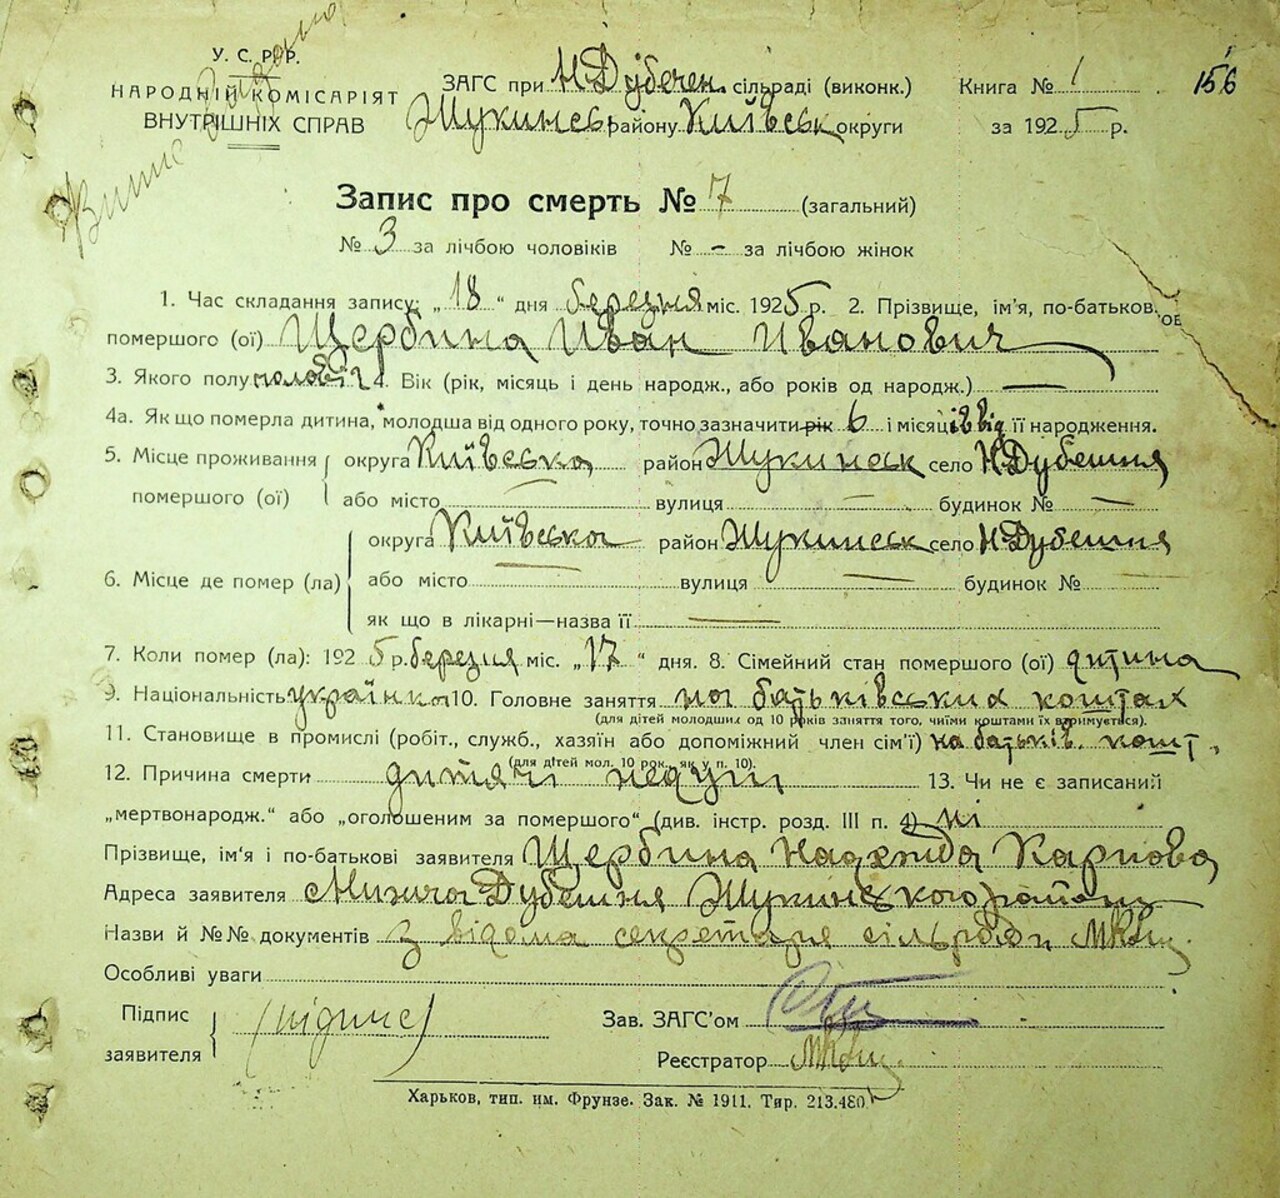 У. С. Р. Р.
НАРОДНІЙ КОМІСАРІЯТ
ВНУТРІШНІХ СПРАВ
ЗАГС при Н Дубечен. сільраді (виконк.)
Жукинськ району Київськ округи
Книга № 1
за 1925 р.
156
Запис про смерть № 7 (загальний)
№ 3 за лічбою чоловіків № - за лічбою жінок
1. Час складання запису: „18“ дня березня міс. 1925 р. 2. Прізвище, ім'я, по-батькові
помершого (ої) Щербина Иван Иванович
3. Якого полу 4. Вік (рік, місяць і день народж., або років од народж.) —
4а. Як що померла дитина, молодша від одного року, точно зазначити рік 6 і місяців від її народження.
5. Місце проживання округа Київська район Жукинськ село Н Дубешня
помершого (ої) або місто — вулиця — будинок № —
округа Київська район Жукинськ село Н Дубешня
6. Місце де помер (ла) або місто — вулиця — будинок № —
як що в лікарні—назва її —
7. Коли помер (ла): 1925 р. березня міс. „17“ дня. 8. Сімейний стан помершого (ої) дитина
9. Національність українка 10. Головне заняття на батьківських коштах
(для дітей молодших од 10 років заняття того, чиїми коштами їх втримується).
11. Становище в промислі (робіт., служб., хазяїн або допоміжний член сім'ї) на батьків. кошт.
(для дітей мол. 10 рок., як у п. 10).
12. Причина смерти дитячі недуги 13. Чи не є записаний
„мертвонародж.“ або „оголошеним за помершого“ (див. інстр. розд. III п. 4) ні
Прізвище, ім'я і по-батькові заявителя Щербина Надежда Карпова
Адреса заявителя Нижча Дубешня Жукинського району
Назви й №№ документів З відома секретаря сільради
Особливі уваги
Підпис
заявителя (підпис)
Зав. ЗАГС'ом
Реєстратор
Харьков, тип. им. Фрунзе. Зак. № 1911. Тир. 213.480.